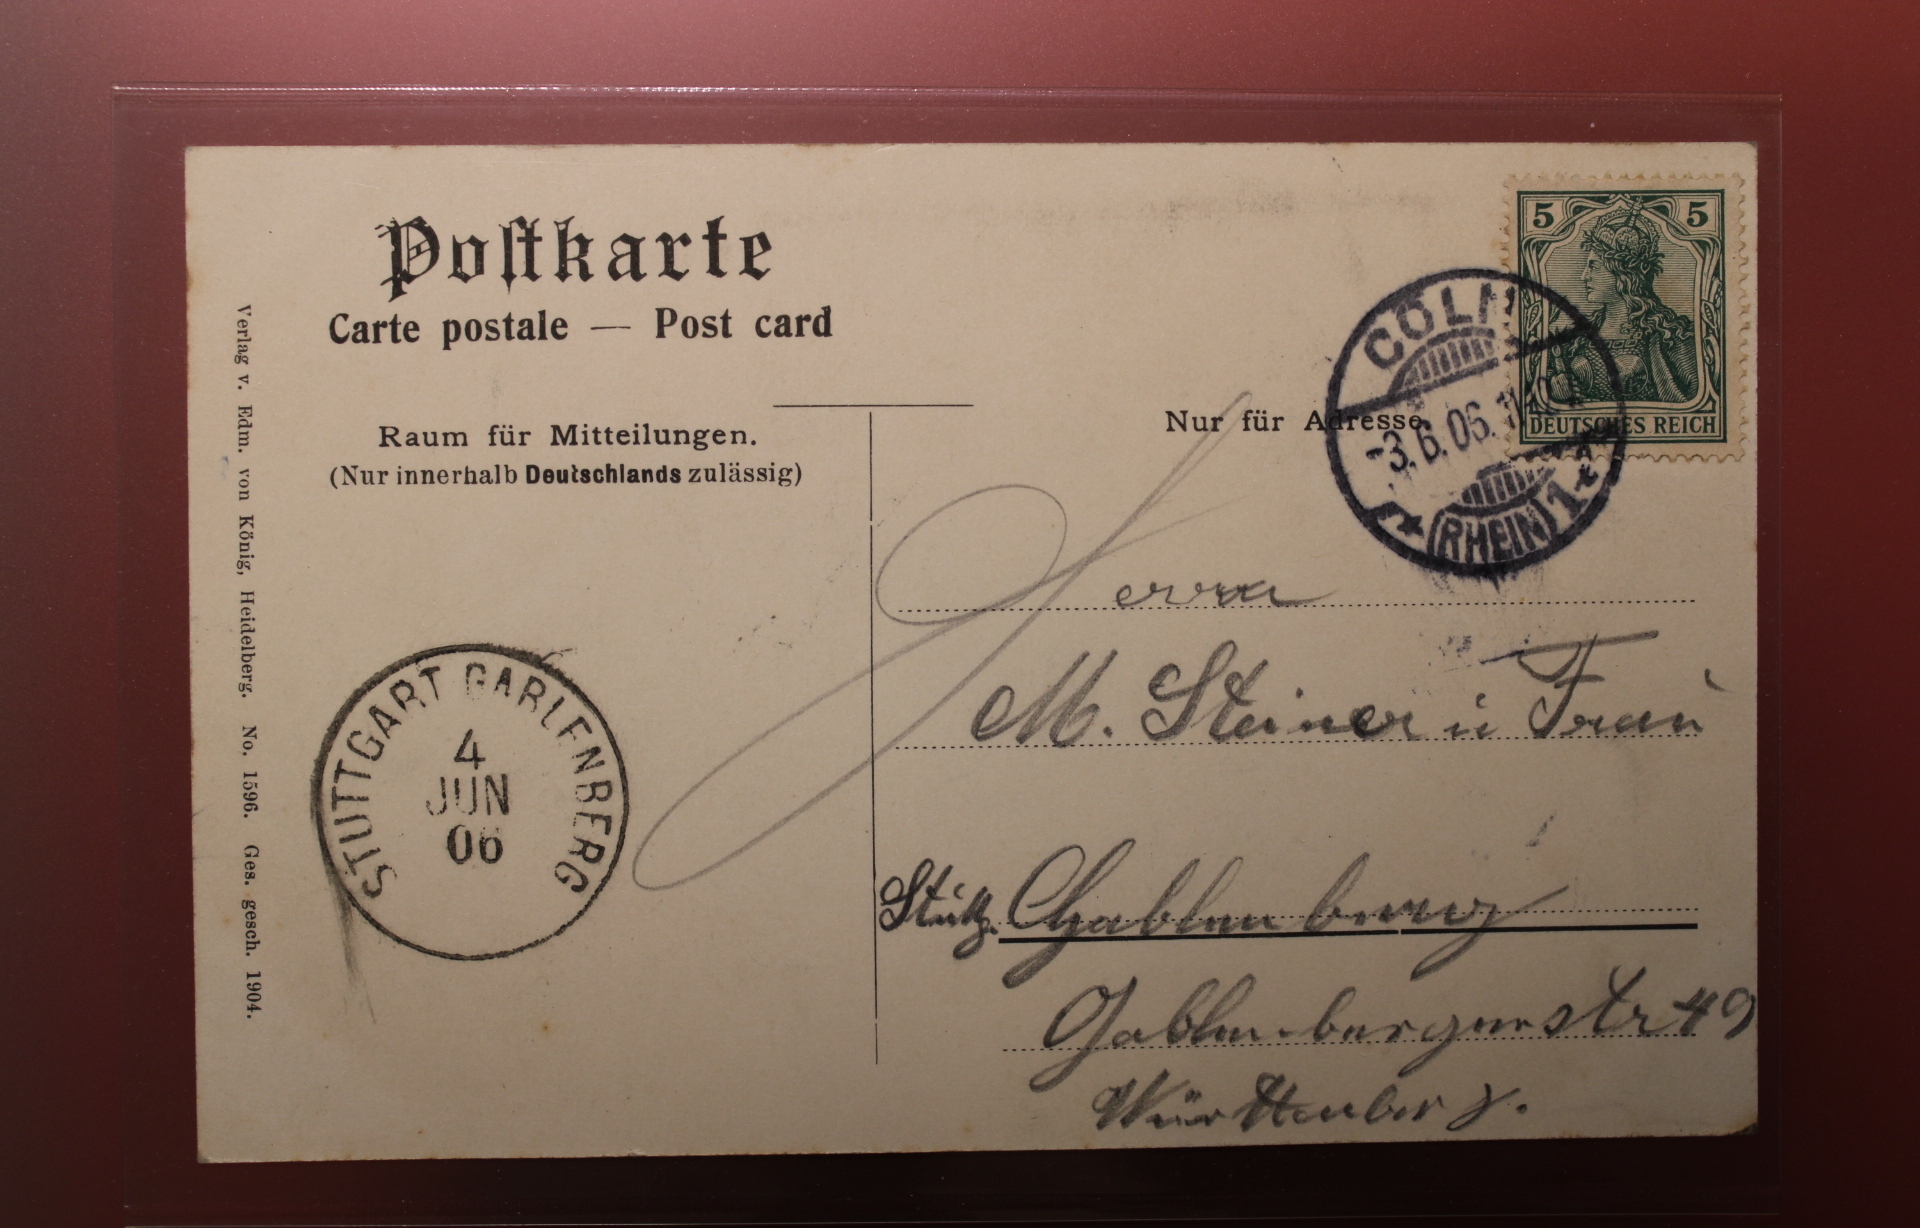 Postkarte
Carte postale — Post card
Raum für Mitteilungen.
(Nur innerhalb Deutschlands zulässig)
Verlag v. Edm. von König, Heidelberg. No. 1596. Ges. gesch. 1904.
STUTTGART GABLENBERG
4
JUN
06
5 5
DEUTSCHES REICH
CÖLN
-3.6.06.
RHEIN
1
Nur für Adresse.
Herrn
M. Steiner u Frau
Stuttg. Gablenberg
Gablenbergerstr 49
Württemberg.